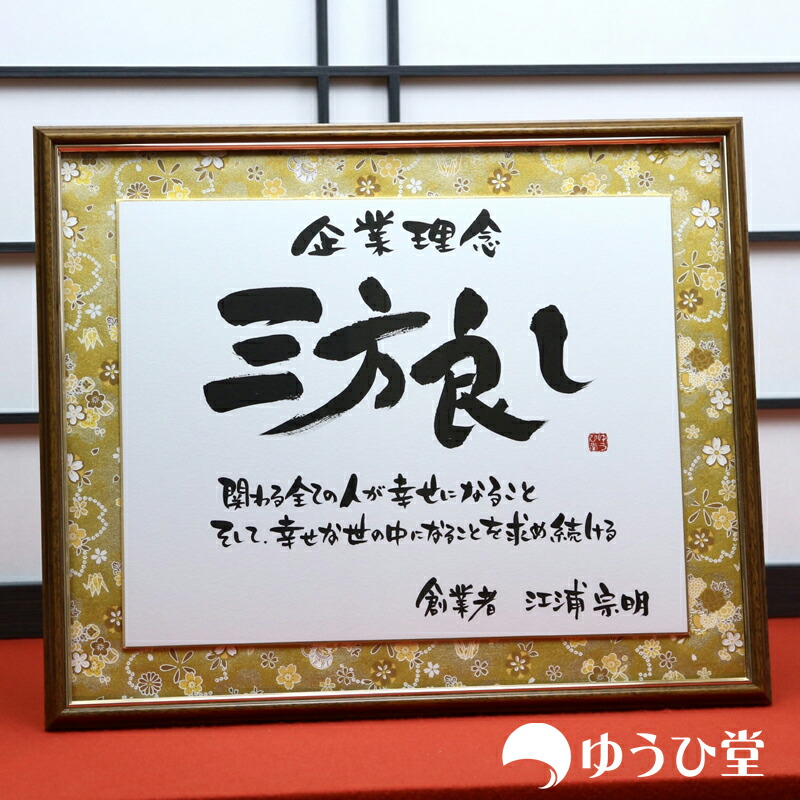 企業理念
三方良し
ゆうひ堂
関わる全ての人が幸せになること
そして、幸せな世の中になることを求め続ける
創業者 江浦宗明
ゆうひ堂